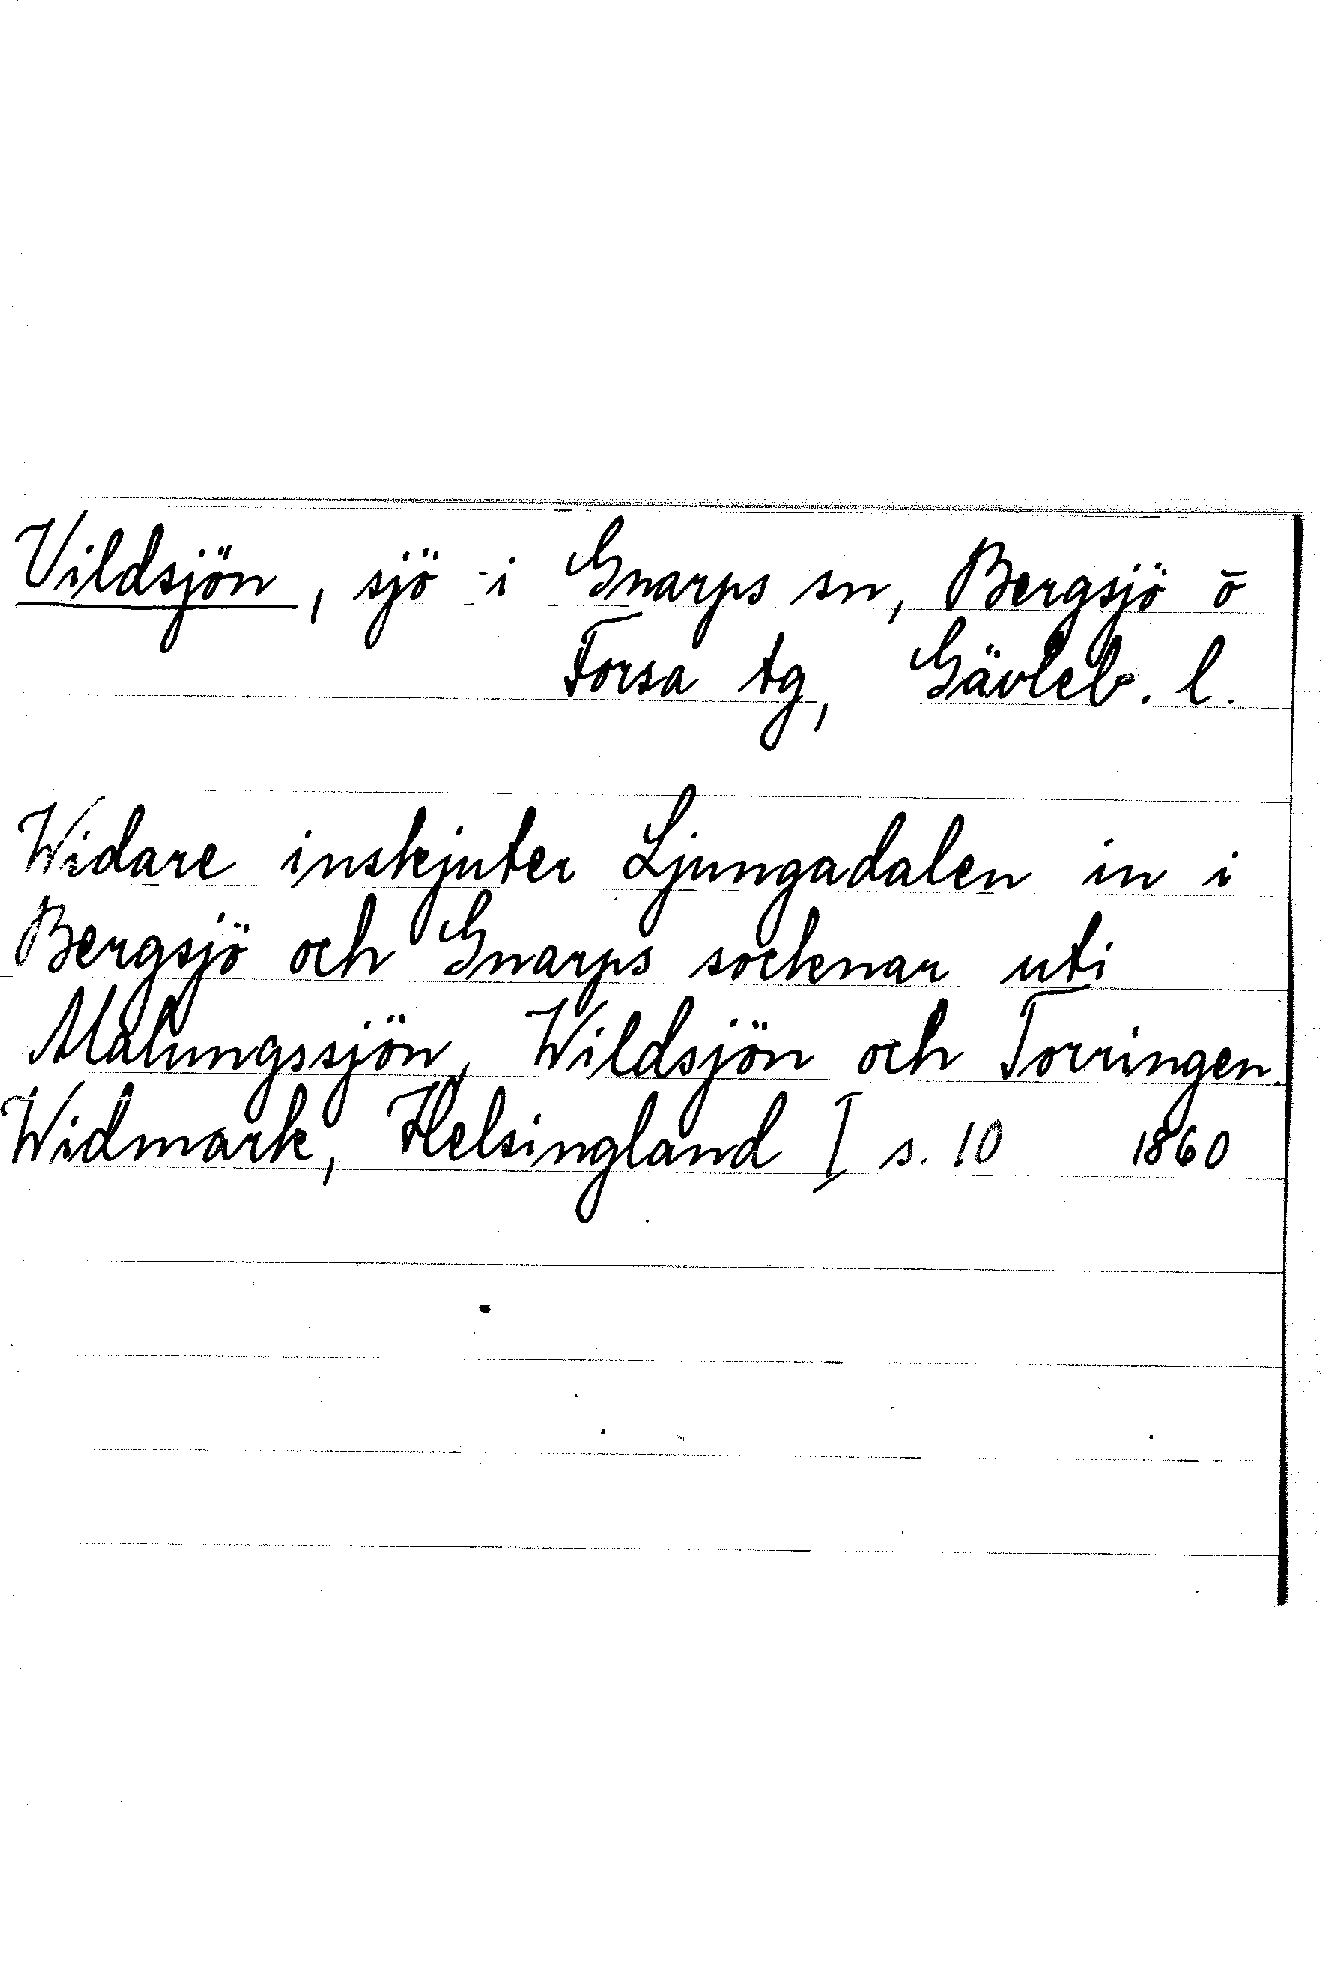 Vildsjön, sjö i Gnarps sn, Bergsjö o
Forsa tg, Gävleb. l.
Widare inskjuter Ljungadalen in i
Bergsjö och Gnarps socknar uti
Malungssjön, Wildsjön och Torringen.
Widmark, Helsingland I s. 10 1860